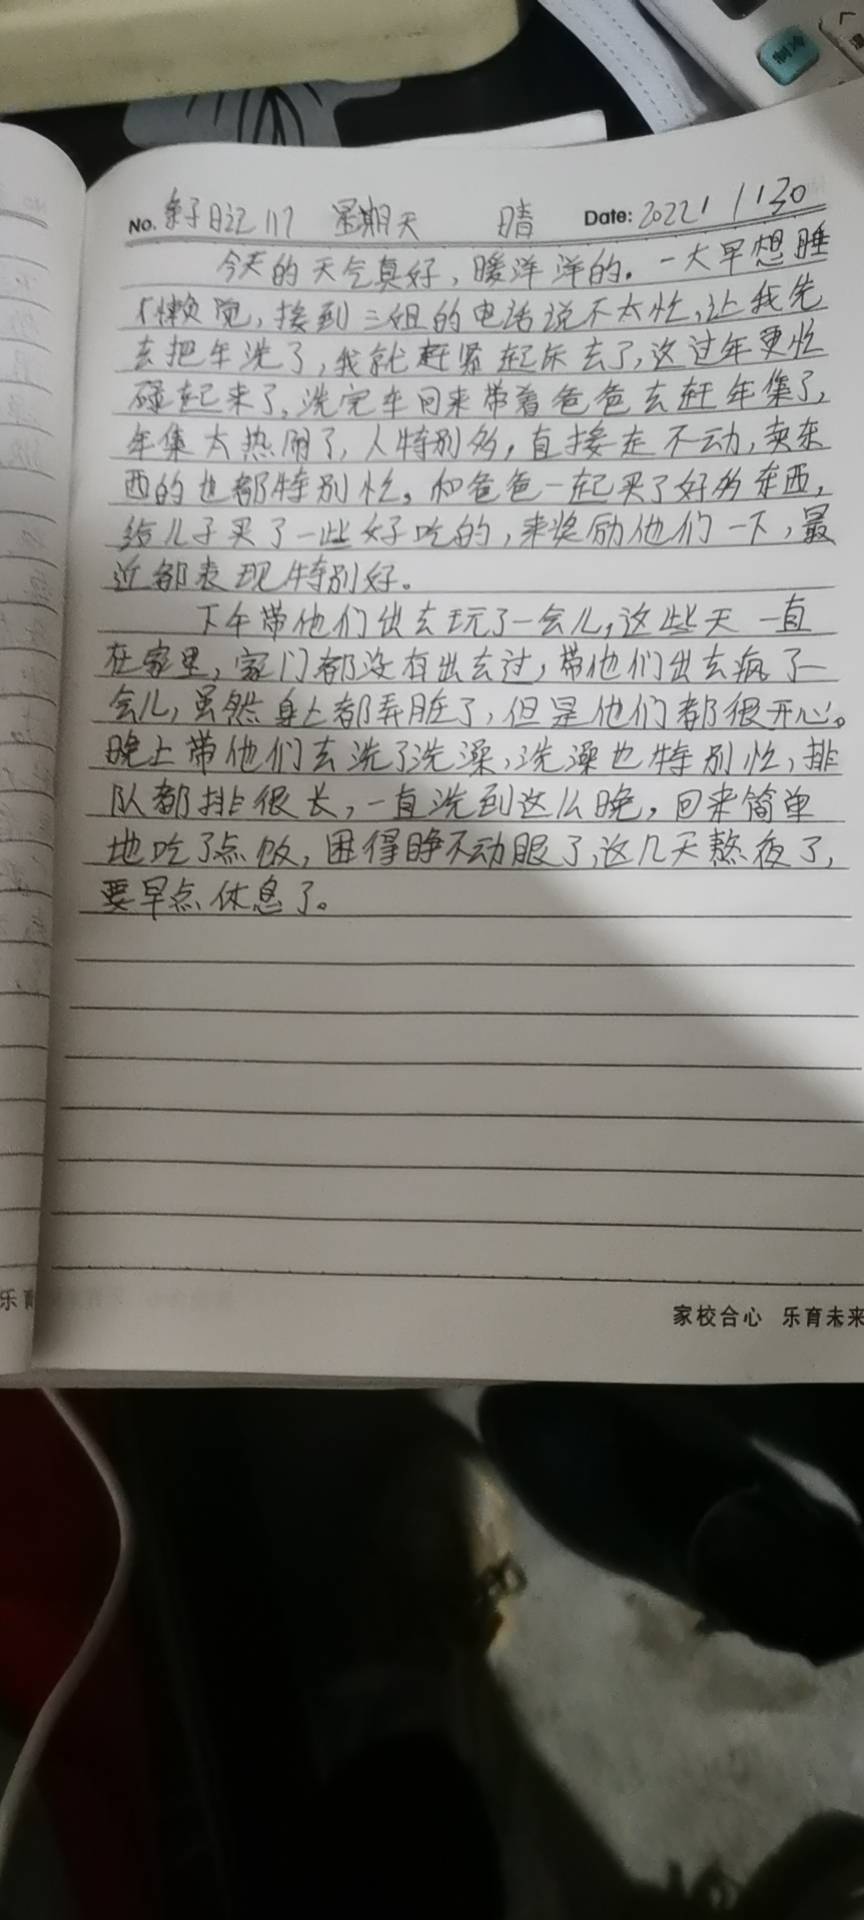 制冷
No. 亲子日记117 星期天 晴 Date: 2022 1 30
今天的天气真好，暖洋洋的。一大早想睡
个懒觉，接到三姐的电话说不太忙，让我先
去把车洗了，我就赶紧起床去了，这过年更忙
碌起来了，洗完车回来带着爸爸去赶年集了，
年集太热闹了，人特别多，直接走不动，卖东
西的也都特别忙。和爸爸一起买了好多东西，
给儿子买了一些好吃的，来奖励他们一下，最
近都表现特别好。
下午带他们出去玩了一会儿，这些天一直
在家里，家门都没有出去过，带他们出去疯了一
会儿，虽然身上都弄脏了，但是他们都很开心。
晚上带他们去洗了洗澡，洗澡也特别忙，排
队都排很长，一直洗到这么晚，回来简单
地吃了点饭，困得睁不动眼了，这几天熬夜了，
要早点休息了。
家校合心 乐育未来